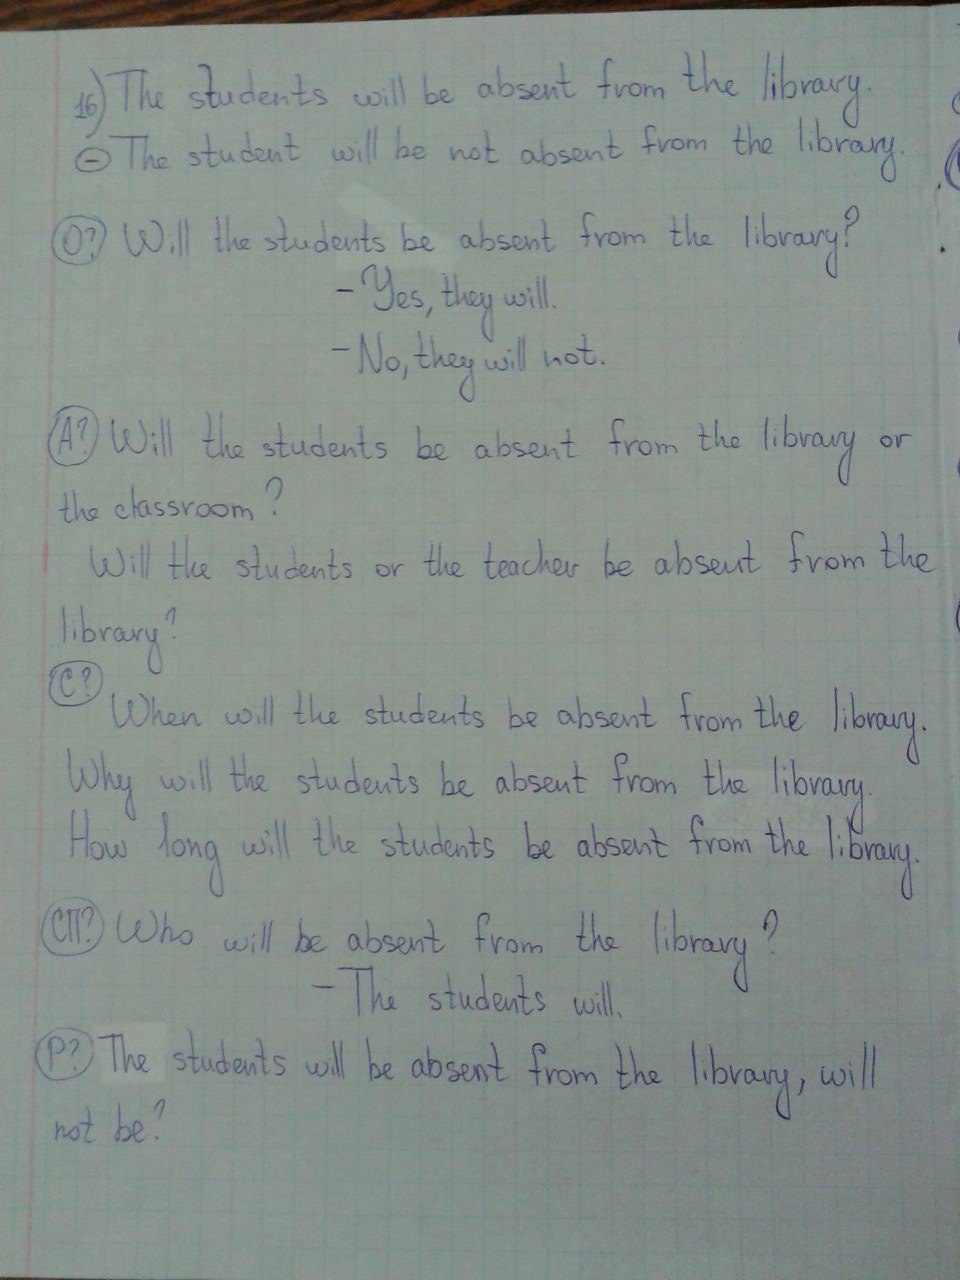 16) The students will be absent from the library.
⊖ The student will be not absent from the library.
О? Will the students be absent from the library?
- Yes, they will.
- No, they will not.
А? Will the students be absent from the library or
the classroom?
Will the students or the teacher be absent from the
library?
С?
When will the students be absent from the library.
Why will the students be absent from the library.
How long will the students be absent from the library.
СП? Who will be absent from the library?
- The students will.
Р? The students will be absent from the library, will
not be?